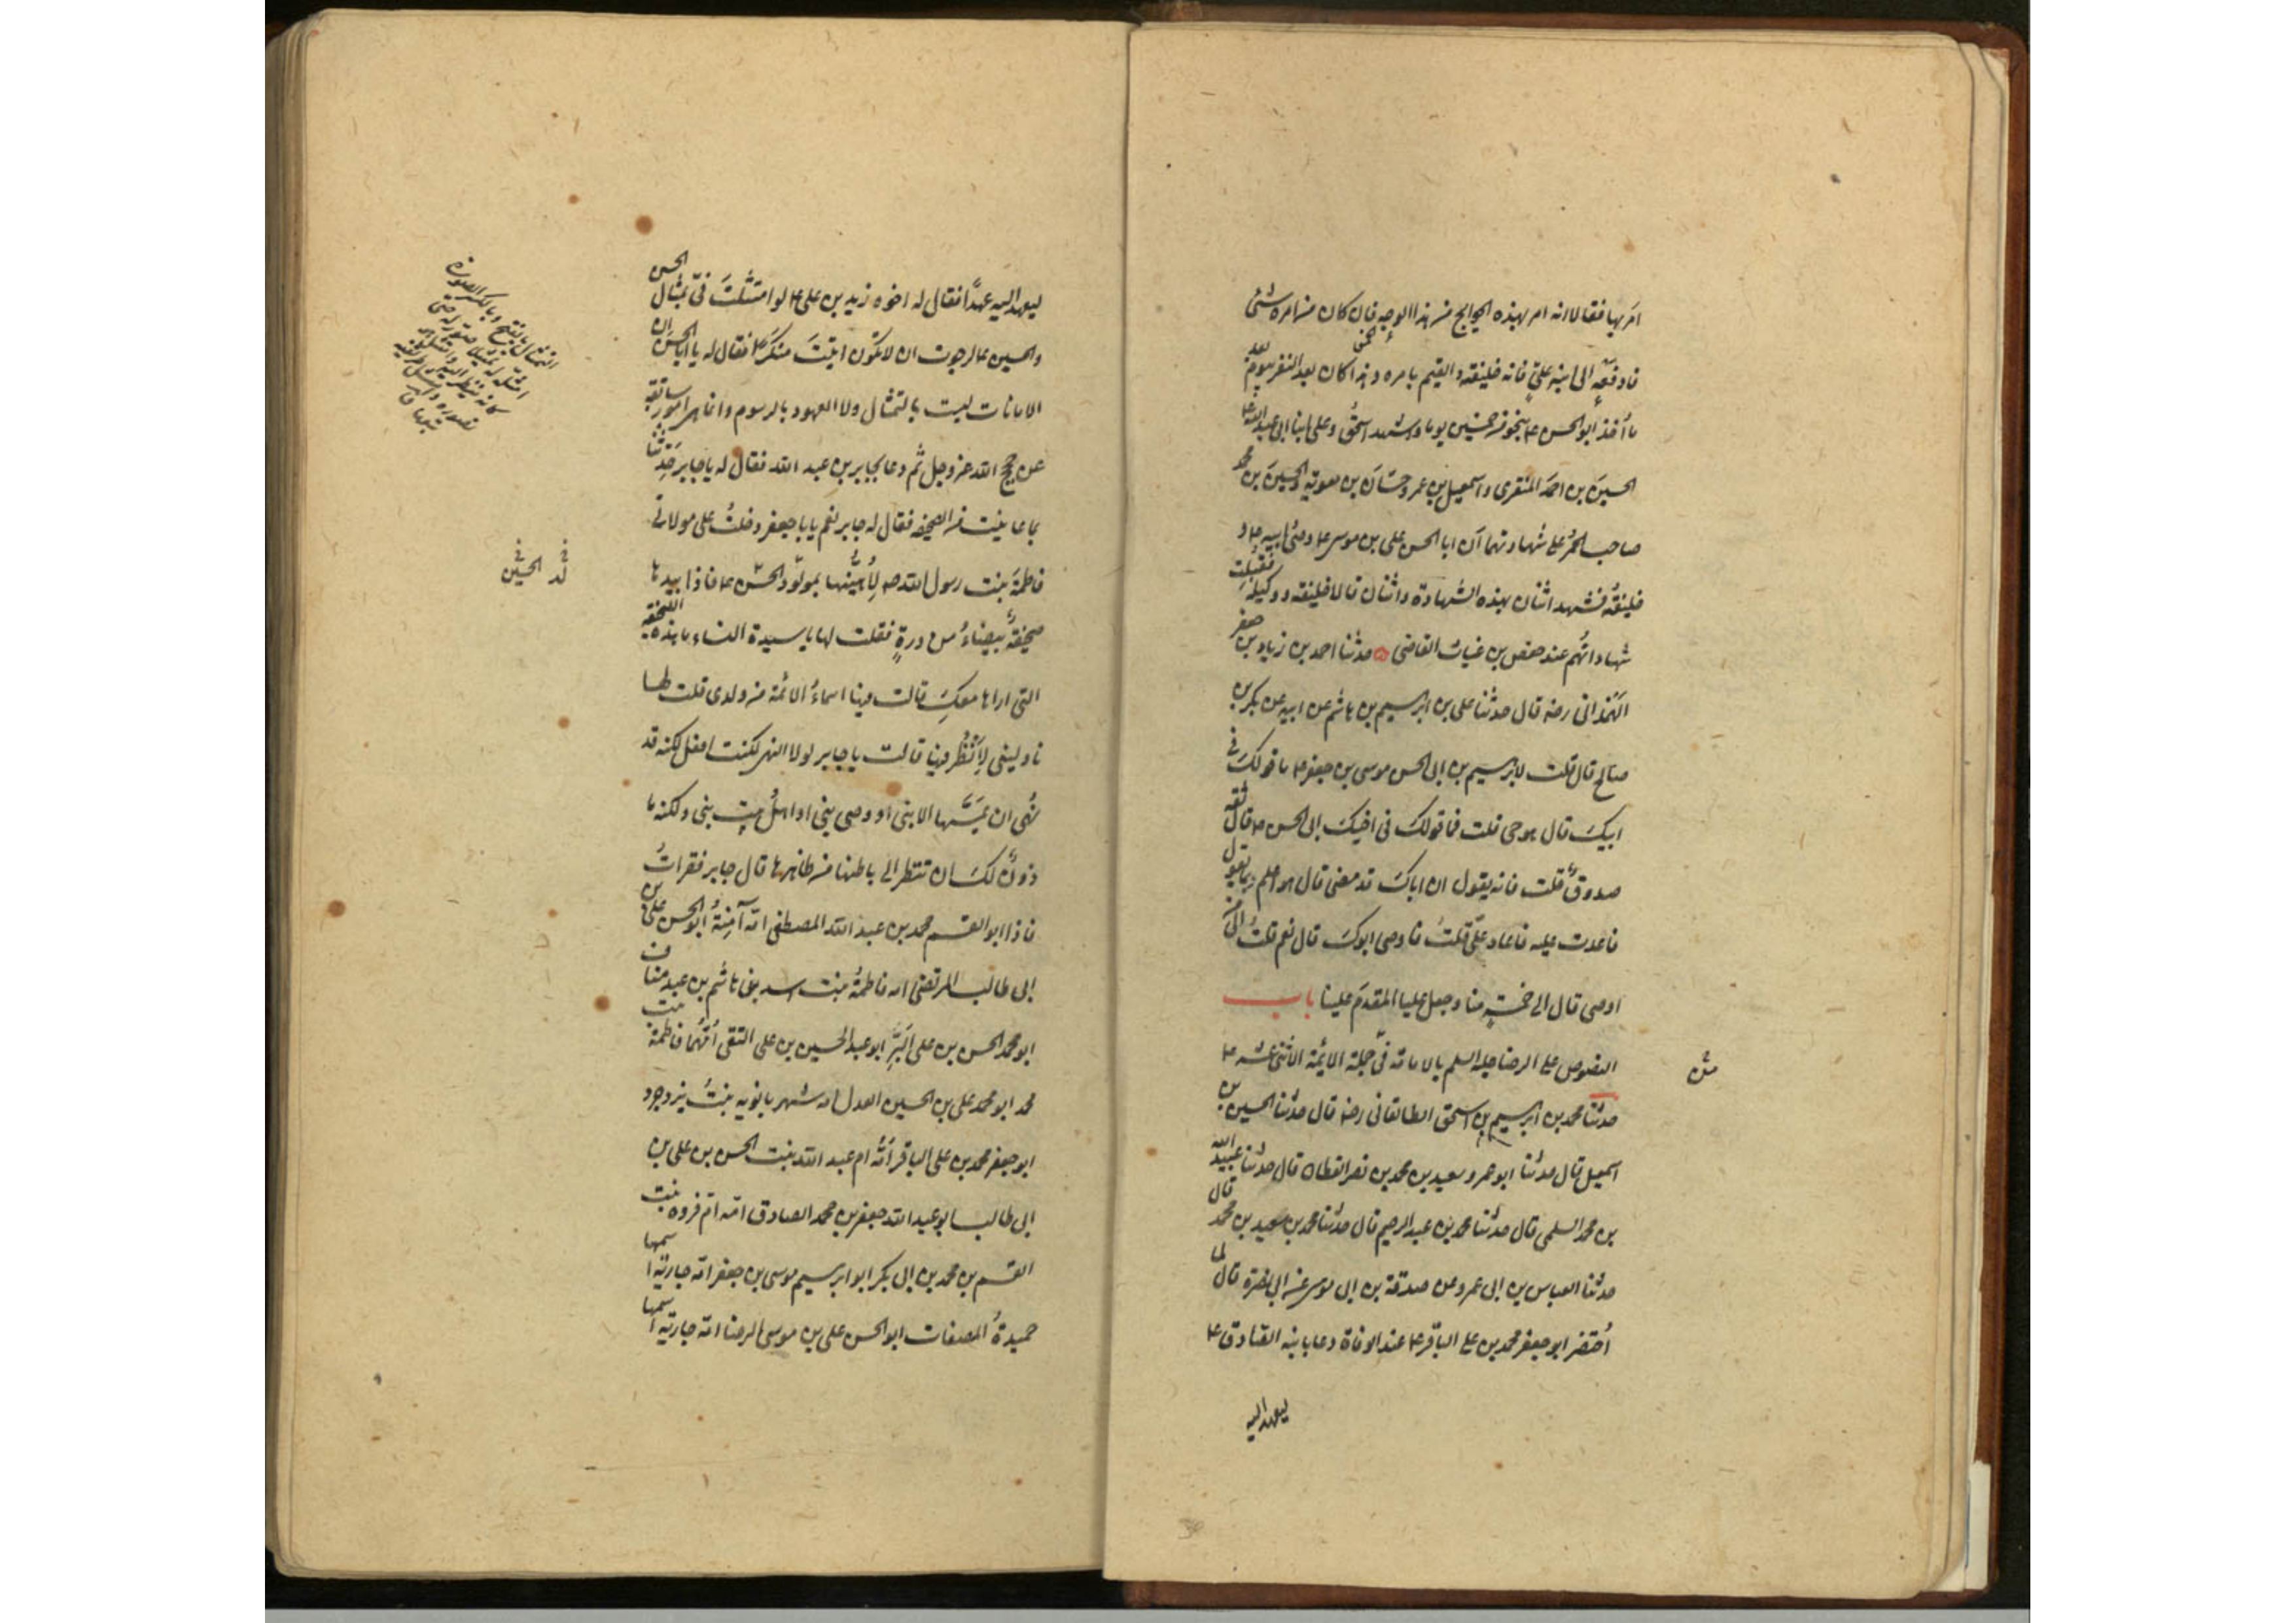 امر بها فقالا انه امر بهذه الحوايج من هذا الوجه فان كان من امره شئ
فادفعه الى ابنه علىّ فانه خليفته والقيم بامره وهذا كان بعد النفر بيوم بعد
ما اُخذ ابو الحسن ع بنحو من خمسين يوما واشهد اسحق وعلى ابنا ابى عبد الله ع
الحسين بن احمد المنقرى واسمعيل بن عمر وحسّان بن معوية والحسين بن محمد
صاحب الخمر على شهادتهما ان ابا الحسن على بن موسى ع وصىّ ابيه ع و
خليفته فشهد اثنان بهذه الشهادة واثنان قالا خليفته ووكيله فقبلت
شهاداتهم عند حفص بن غياث القاضى حدثنا احمد بن زياد بن جعفر
الهمدانى رضه قال حدثنا على بن ابرهيم بن هاشم عن ابيه عن بكر بن
صالح قال قلت لابرهيم بن ابى الحسن موسى بن جعفر ع ما قولك فى
ابيك قال هو حى قلت فما قولك فى اخيك ابى الحسن ع قال ثقة
صدوق قلت فانه يقول ان اباك قد مضى قال هو اعلم بما يقول
فاعدت عليه فاعاد علىّ قلت فاوصى ابوك قال نعم قلت الى من
اوصى قال الى خمسة منا وجعل عليا المقدم علينا باب
النصوص على الرضا عليه السلم بالامامة فى جملة الائمة الاثنى عشر ع
حدثنا محمد بن ابرهيم بن اسحق الطالقانى رضه قال حدثنا الحسين بن
اسمعيل قال حدثنا ابو عمرو سعيد بن محمد بن نصر القطان قال حدثنا عبيد الله
بن محمد السلمى قال حدثنا محمد بن عبد الرحيم قال حدثنا محمد بن سعيد بن محمد قال
حدثنا العباس بن ابى عمرو عن صدقة بن ابى موسى عن ابى نضرة قال لما
اُحتضر ابو جعفر محمد بن على الباقر ع عند الوفاة دعا بابنه الصادق ع
ليعهد اليه
ليعهد اليه عهدًا فقال له اخوه زيد بن على ع لو امتثلت فىّ بمثال الحسن
والحسين ع لرجوت ان لا تكون اتيت منكرًا فقال له يا ابا الحسن ان
الامانات ليست بالتمثال ولا العهود بالرسوم وانما هى امور سابقة
عن حجج الله عز وجل ثم دعا بجابر بن عبد الله فقال له يا جابر حدثنا
بما عاينت من الصحيفه فقال له جابر نعم يا با جعفر دخلت على مولاتى
فاطمة بنت رسول الله صه لِأُهنّيها بمولود الحسن ع فاذا بيدها
صحيفة بيضاء من درة فقلت لها يا سيدة النساء ما هذه الصحيفة
التى اراها معك قالت فيها اسماء الائمة من ولدى قلت لها
ناولينى لِأنظر فيها قالت يا جابر لولا النهى لكنت افعل لكنه قد
نُهى ان يمسّها الا نبى او وصى نبى او اهل بيت نبى ولكنه ما
ذون لك ان تنظر الى باطنها من ظاهرها قال جابر فقرات
فاذا ابو القسم محمد بن عبد الله المصطفى امّه آمنة ابو الحسن على بن
ابى طالب المرتضى امه فاطمة بنت اسد بن هاشم بن عبد مناف
ابو محمد الحسن بن على البَرّ ابو عبد الحسين بن على التقى اُمّهما فاطمة بنت
محمد ابو محمد على بن الحسين العدل امه شهربانويه بنت يزدجرد
ابو جعفر محمد بن على الباقر امّه ام عبد الله بنت الحسن بن على بن
ابى طالب ابو عبد الله جعفر بن محمد الصادق امّه امّ فروه بنت
القسم بن محمد بن ابى بكر ابو ابرهيم موسى بن جعفر امّه جارية اسمها
حميدة المصفات ابو الحسن على بن موسى الرضا امّه جارية اسمها